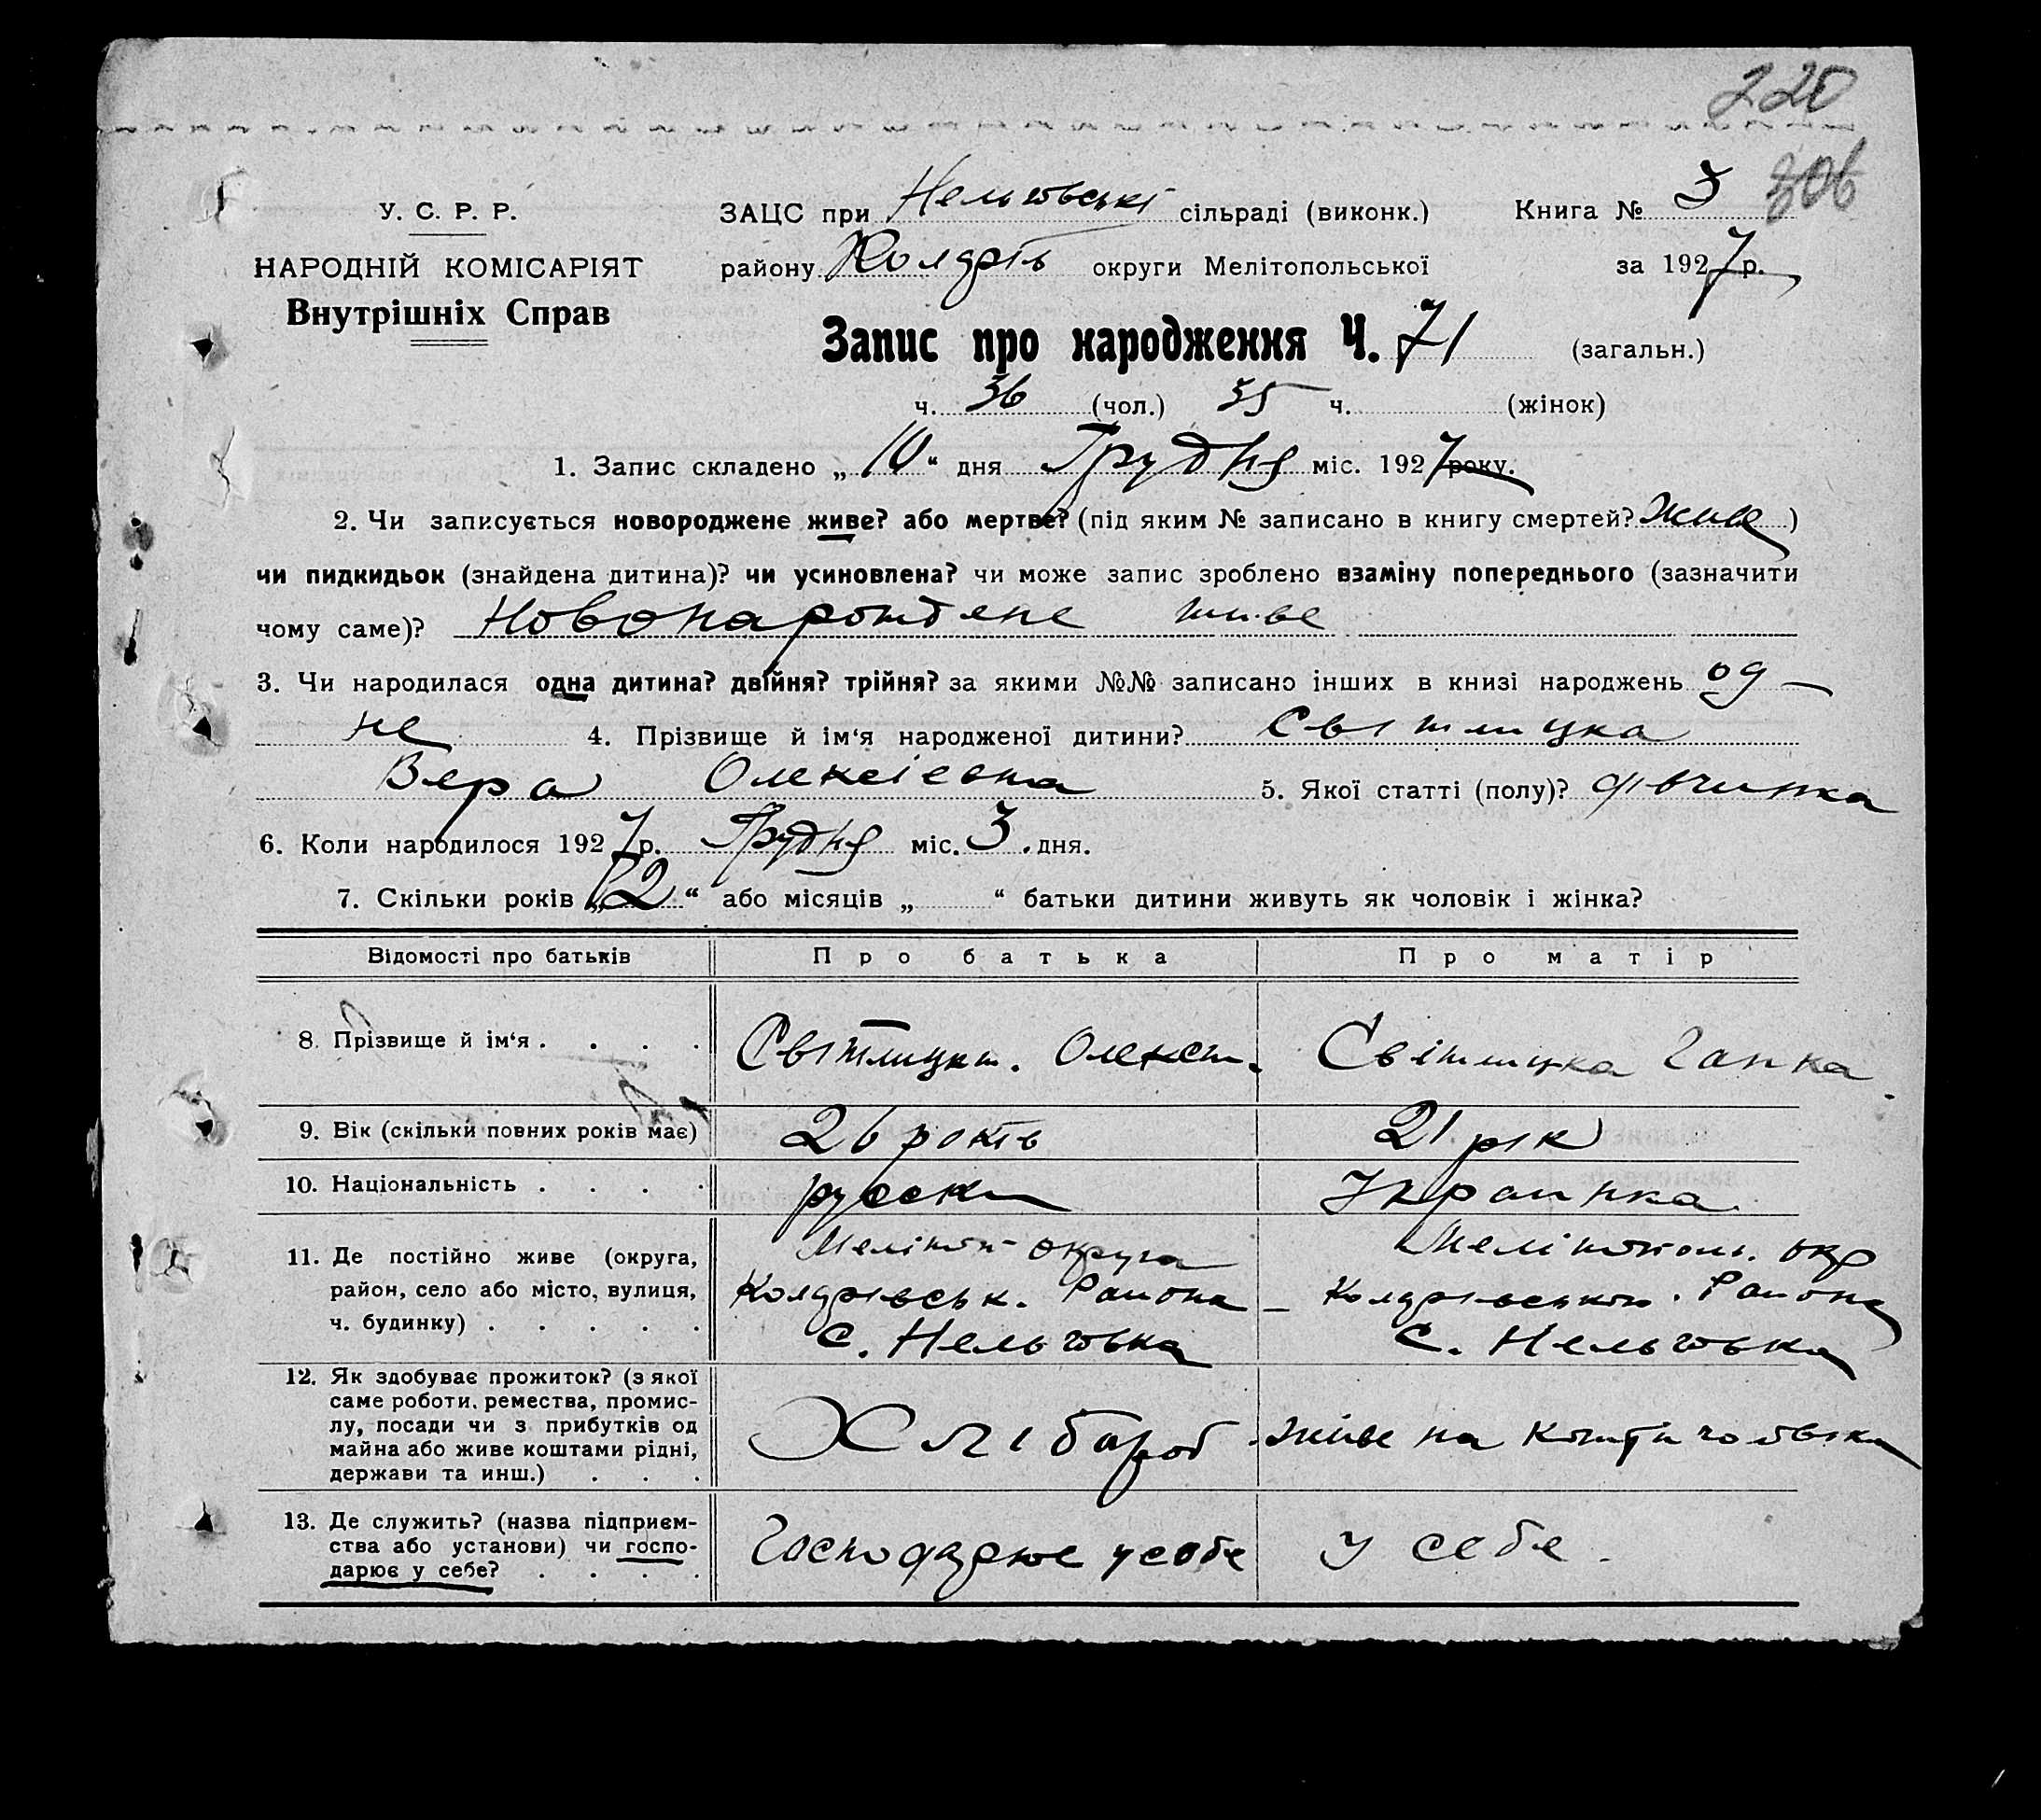 220
306
У. С. Р. Р. ЗАЦС при Нельговські сільраді (виконк.) Книга № 3
НАРОДНІЙ КОМІСАРІЯТ району Колдрів округи Мелітопольської за 1927 р.
Внутрішніх Справ
Запис про народження Ч. 71 (загальн.)
ч. 36 (чол.) 35 ч. (жінок)
1. Запис складено „10“ дня Грудня міс. 1927 року.
2. Чи записується новороджене живе? або мертве? (під яким № записано в книгу смертей? живе)
чи пидкидьок (знайдена дитина)? чи усиновлена? чи може запис зроблено взаміну попереднього (зазначити
чому саме)? Новонарождене живе
3. Чи народилася одна дитина? двійня? трійня? за якими №№ записано інших в книзі народжень од-
не 4. Прізвище й ім‘я народженої дитини? Світлицка
Вера Олексіевна 5. Якої статті (полу)? дівчинка
6. Коли народилося 1927 р. Грудня міс. 3 дня.
7. Скільки років „2“ або місяців „ “ батьки дитини живуть як чоловік і жінка?
Відомості про батьків Про батька Про матір
8. Прізвище й ім‘я . . . . Світлицки. Олекси. Світлицка Ганка
9. Вік (скільки повних років має) 26 років 21 рік
10. Національність . . . . русски Украинка
11. Де постійно живе (округа,
район, село або місто, вулиця,
ч. будинку) . . . . .
Меліт округа
Колдрівськ. Района
с. Нельговка
Мелітополь. окр
Колдрівського. Района
с. Нельговка
12. Як здобуває прожиток? (з якої
саме роботи, ремества, промис-
лу, посади чи з прибутків од
майна або живе коштами рідні,
держави та инш.) . . .
Хлібароб
живе на кошти чоловіка
13. Де служить? (назва підприєм-
ства або установи) чи госпо-
дарює у себе? . . . .
Господарює у себе
у себе.